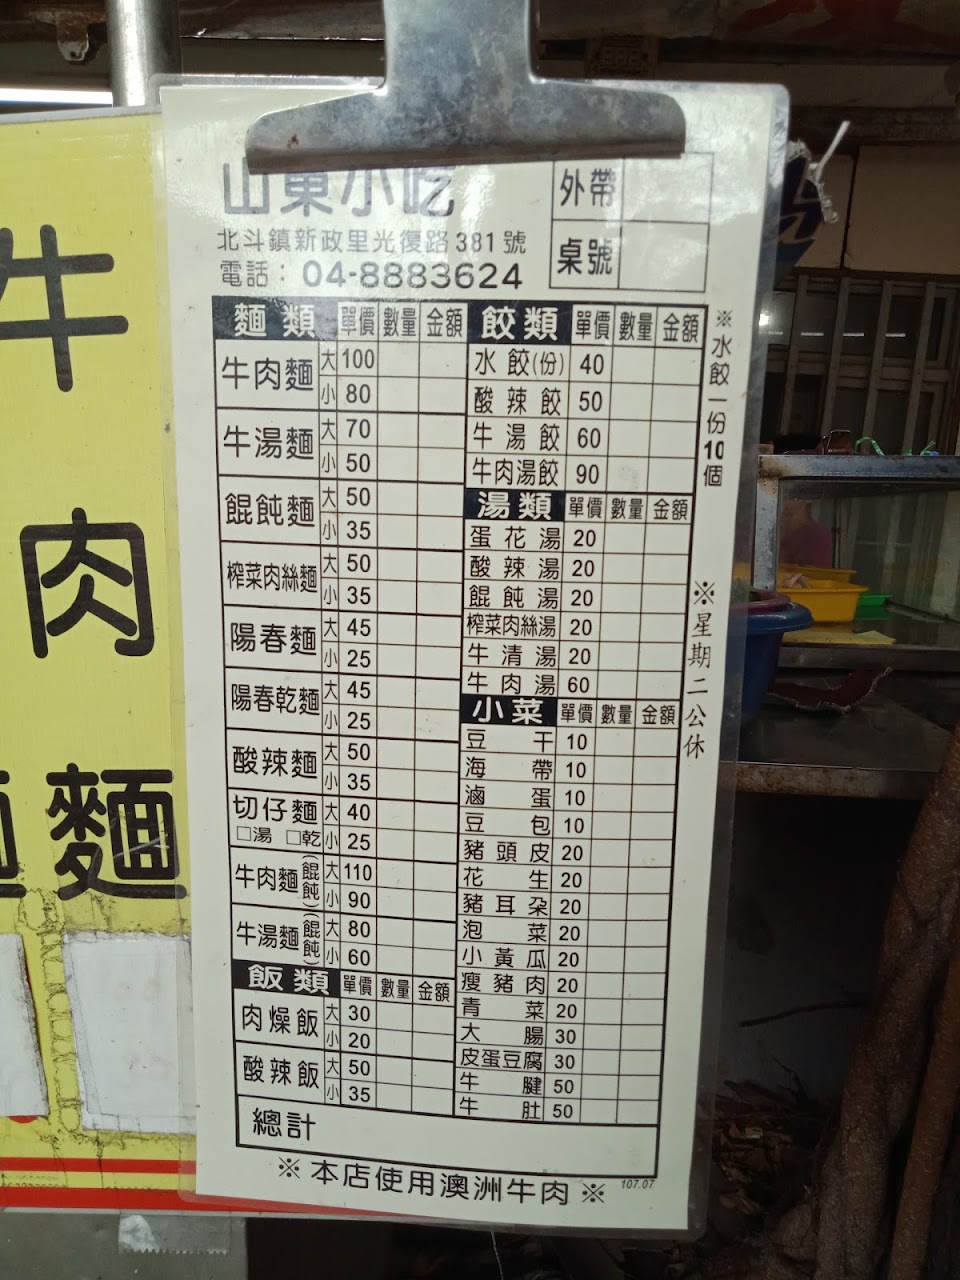 山東小吃
北斗鎮新政里光復路381號
電話：04-8883624
外帶
桌號
麵類 單價 數量 金額
牛肉麵 大 100
小 80
牛湯麵 大 70
小 50
餛飩麵 大 50
小 35
榨菜肉絲麵 大 50
小 35
陽春麵 大 45
小 25
陽春乾麵 大 45
小 25
酸辣麵 大 50
小 35
切仔麵 大 40
□湯 □乾 小 25
牛肉麵(餛飩) 大 110
小 90
牛湯麵(餛飩) 大 80
小 60
飯類 單價 數量 金額
肉燥飯 大 30
小 20
酸辣飯 大 50
小 35
餃類 單價 數量 金額
水餃(份) 40
酸辣餃 50
牛湯餃 60
牛肉湯餃 90
湯類 單價 數量 金額
蛋花湯 20
酸辣湯 20
餛飩湯 20
榨菜肉絲湯 20
牛清湯 20
牛肉湯 60
小菜 單價 數量 金額
豆干 10
海帶 10
滷蛋 10
豆包 10
豬頭皮 20
花生 20
豬耳朵 20
泡菜 20
小黃瓜 20
瘦豬肉 20
青菜 20
大腸 30
皮蛋豆腐 30
牛腱 50
牛肚 50
總計
※本店使用澳洲牛肉※
107.07
※水餃一份10個
※星期二公休
牛
肉
麵